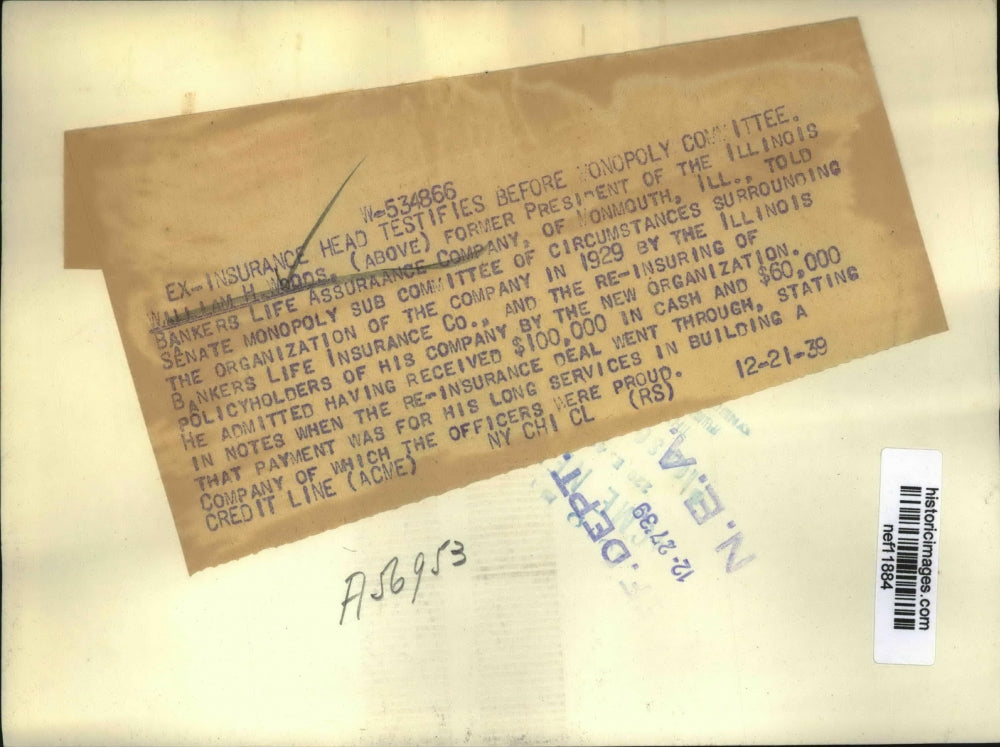 W-534866
EX-INSURANCE HEAD TESTIFIES BEFORE MONOPOLY COMMITTEE.
WILLIAM H. WOODS, (ABOVE) FORMER PRESIDENT OF THE ILLINOIS
BANKERS LIFE ASSURAANCE COMPANY, OF MONMOUTH, ILL., TOLD
SENATE MONOPOLY SUB COMMITTEE OF CIRCUMSTANCES SURROUNDING
THE ORGANIZATION OF THE COMPANY IN 1929 BY THE ILLINOIS
BANKERS LIFE INSURANCE CO., AND THE RE-INSURING OF
POLICYHOLDERS OF HIS COMPANY BY THE NEW ORGANIZATION.
HE ADMITTED HAVING RECEIVED $100,000 IN CASH AND $60,000
IN NOTES WHEN THE RE-INSURANCE DEAL WENT THROUGH, STATING
THAT PAYMENT WAS FOR HIS LONG SERVICES IN BUILDING A
COMPANY OF WHICH THE OFFICERS WERE PROUD. 12-21-39
CREDIT LINE (ACME) NY CHI CL (RS)
DEPT.
12-27-39
N. E. A.
A56953
historicimages.com
nef11884